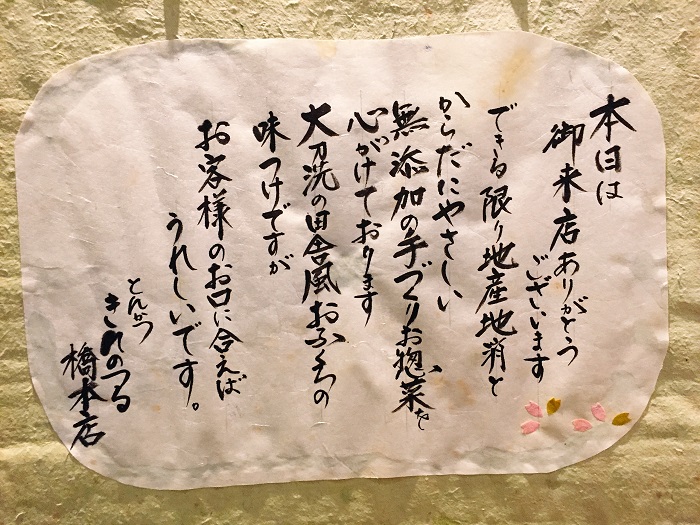 本日は
御来店ありがとう
ございます
できる限り地産地消と
からだにやさしい
無添加の手づくりお惣菜を
心がけております
大刀洗の田舎風おふくろの
味つけですが
お客様のお口に合えば
うれしいです。
とんかつ
きれのつる
橋本店